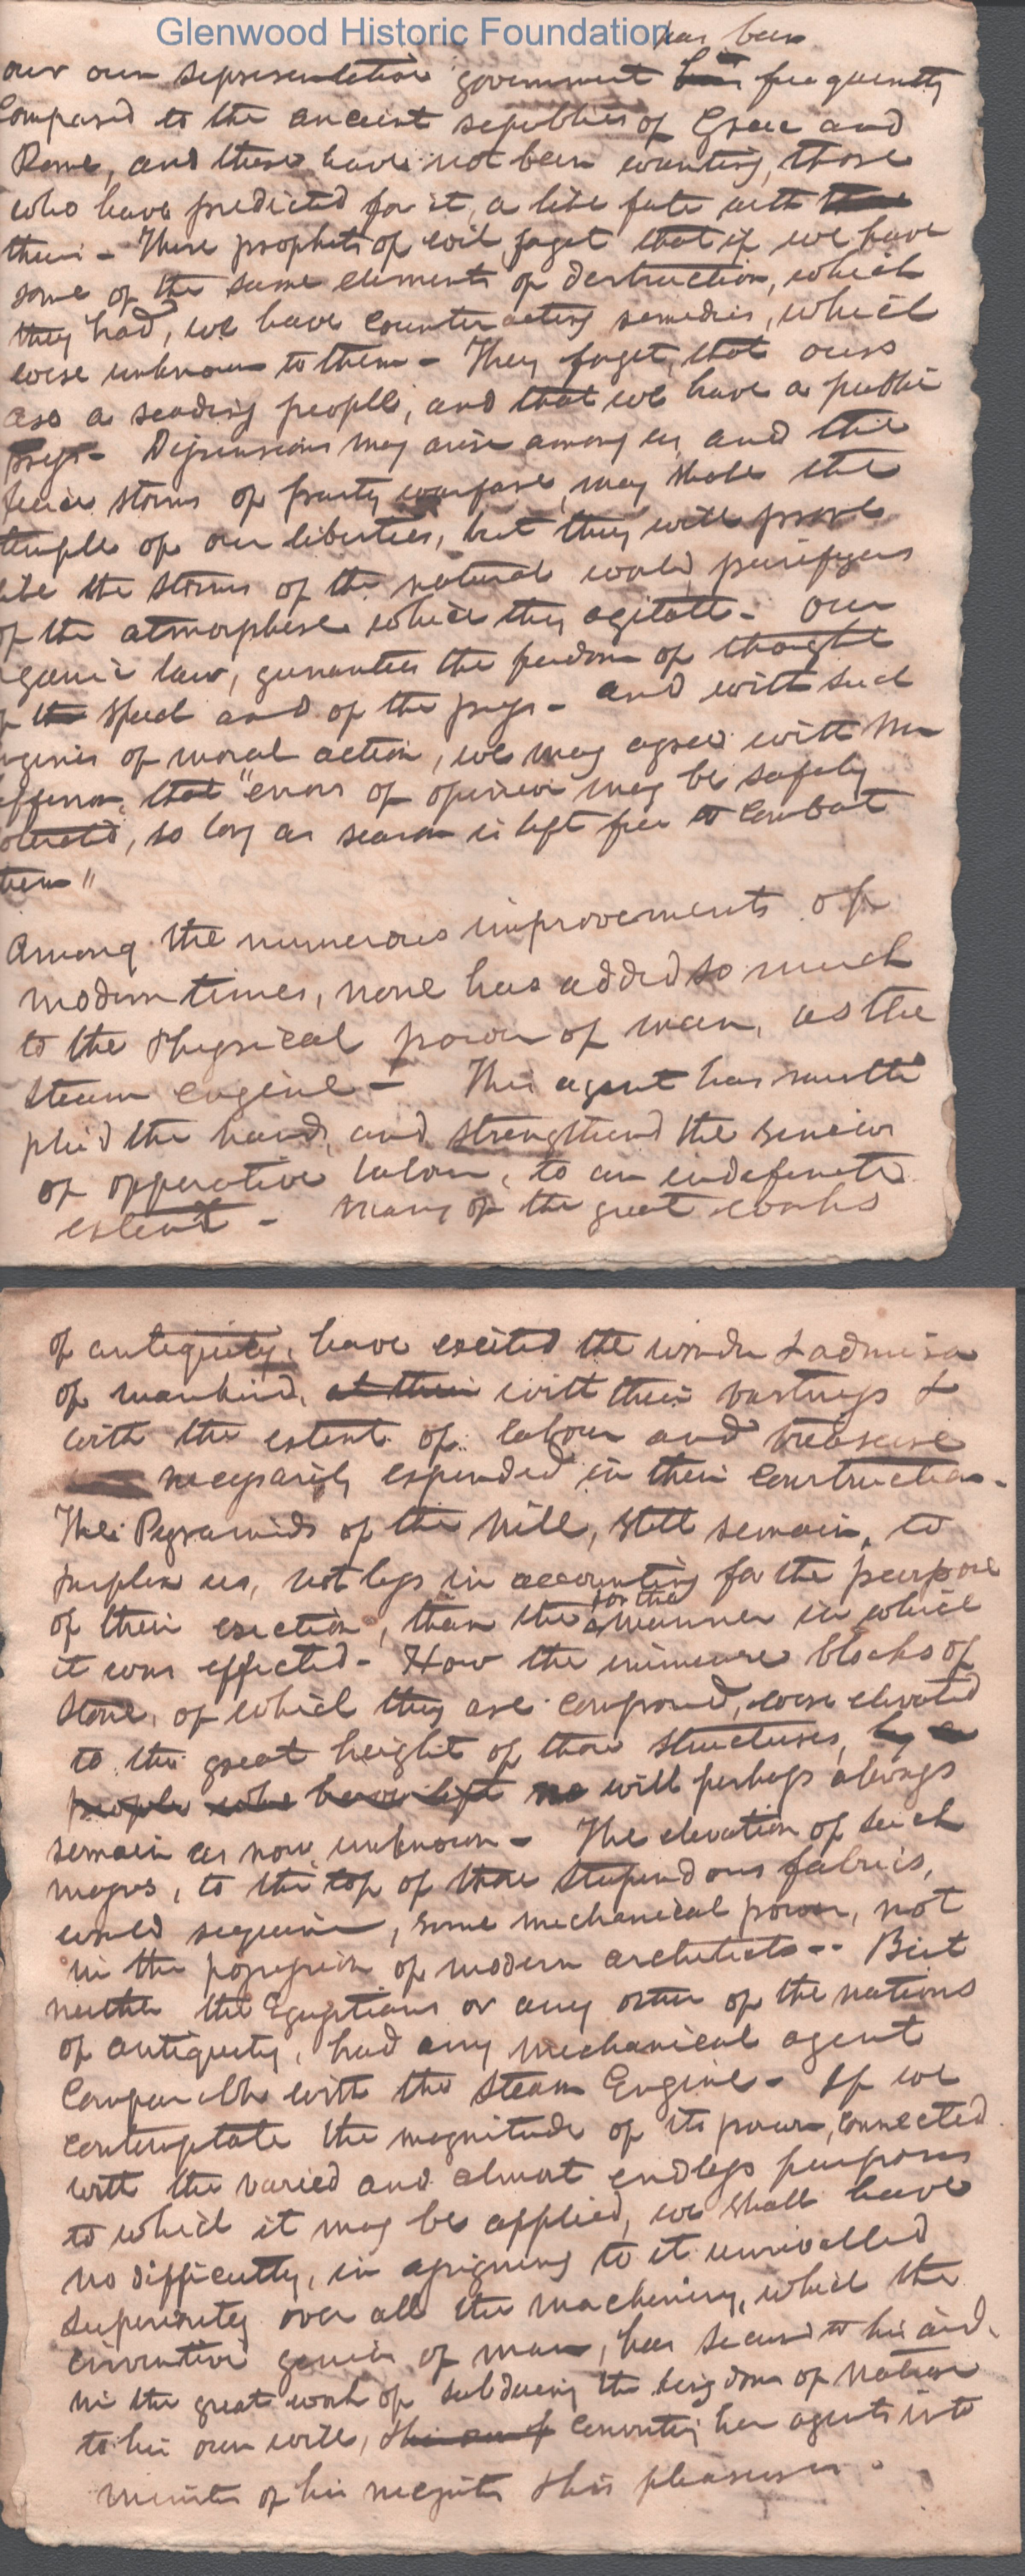 Glenwood Historic Foundation
has been
our own representative government frequently
Compared to the ancient republics of Greece and
Rome, and there have not been wanting, those
who have predicted for it, a like fate with
them - These prophets of evil, forget that if we have
some of the same elements of destruction, which
they had, we have counteracting remedies, which
were unknown to them - They forget, that ours
are a reading people, and that we have a public
press - Dissensions may arise among us, and the
fierce storms of party warfare, may shake the
temple of our liberties, but they will prove
like the storms of the natural world, purifyers
of the atmosphere which they agitate - Our
organic law, guarantees the freedom of thought
of the speech and of the press - and with such
engines of moral action, we may agree with Mr
Jefferson, that "errors of opinion may be safely
tolerated, so long as reason is left free to combat
them"
Among the numerous improvements of
modern times, none has added so much
to the physical power of man, as the
steam engine - This agent has multi
plied the hands, and strengthened the sinews
of opperative labour, to an indefinite
extent - Many of the great works
of antiquity, have excited the wonder & admira
of mankind, at their with their vastness &
with the extent of labour and treasure
necessarily expended in their construction -
The Pyramids of the Nile, still remain, to
perplex us, not less in accounting for the purpose
for the
of their erection, than the manner in which
it was effected - How the immense blocks of
stone, of which they are composed, were elevated
to the great height of those structures, by a
people who have left no will perhaps always
remain as now unknown - The elevation of such
masses, to the top of those stupendous fabrics,
would require, some mechanical power, not
in the possession of modern architects - But
neither the Egyptians or any other of the nations
of antiquity, had any mechanical agent
Comparable with the Steam Engine - If we
contemplate the magnitude of its power, connected
with the varied and almost endless purposes
to which it may be applied, we shall have
no difficulty, in assigning to it unrivalled
superiority over all the machinery, which the
inventive genius of man, has secured to his aid,
in the great work of subduing the kingdom of Nature
to his own will, converting her agents into
ministers of his necessities & his pleasures.